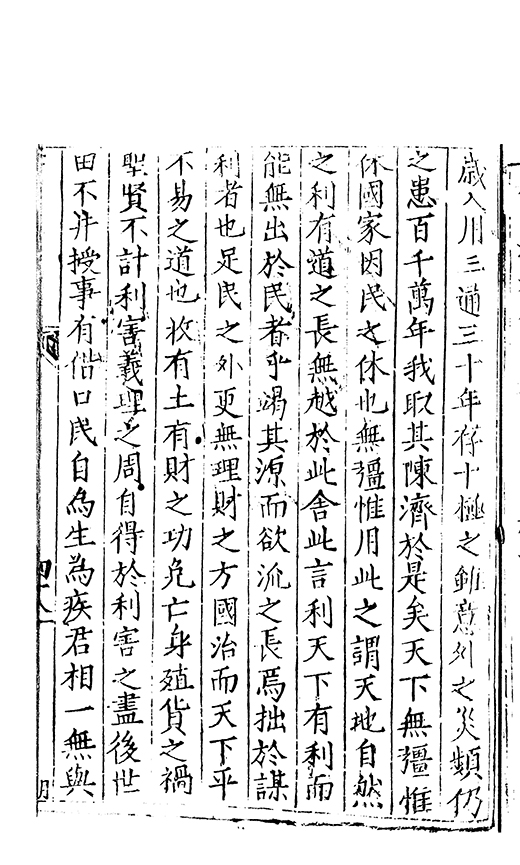 歲入用三通三十年存十極之雖意外之災類仍
之患百千萬年我取其陳濟於是矣天下無彊惟
休國家因民之休也無彊惟用此之謂天地自然
之利有道之長無越於此舍此言利天下有利而
能無出於民者乎竭其源而欲流之長焉拙於謀
利者也足民之外更無理財之方國治而天下平
不易之道也收有土有財之功免亡身殖貨之禍
聖賢不計利害義理之周自得於利害之盡後世
田不井授事有偕口民自為生為疾君相一無與